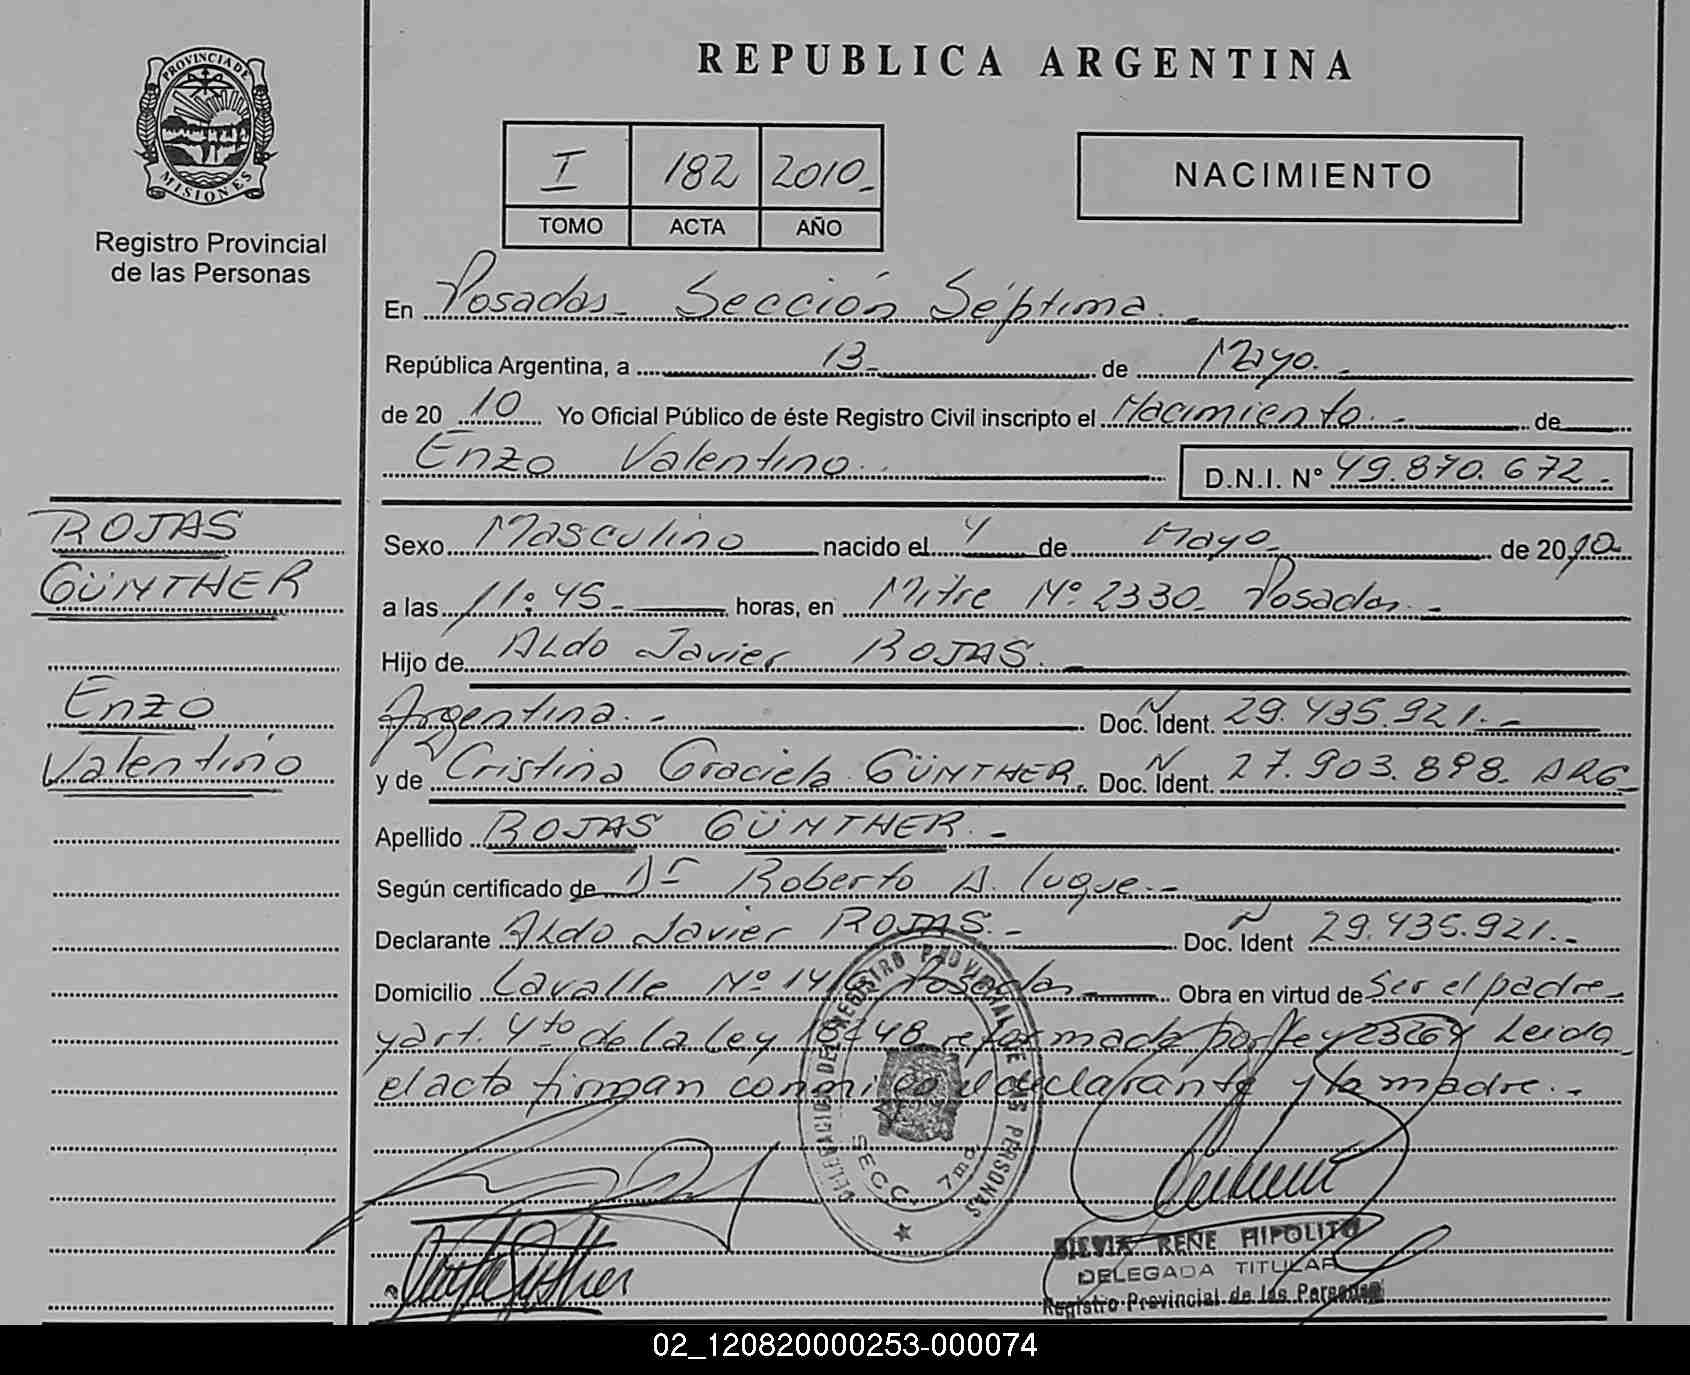 PROVINCIA DE
MISIONES
Registro Provincial
de las Personas
REPUBLICA ARGENTINA
I 182 2010
TOMO ACTA AÑO
NACIMIENTO
En Posadas Sección Séptima
República Argentina, a 13 de Mayo
de 20 10 Yo Oficial Público de éste Registro Civil inscripto el Nacimiento de
Enzo Valentino D.N.I. Nº 49.870.672
ROJAS
GÜNTHER
Enzo
Valentino
Sexo Masculino nacido el 4 de Mayo de 2010
a las 11:45 horas, en Mitre Nº 2330 Posadas
Hijo de Aldo Javier ROJAS
Argentina Doc. Ident. 29.435.921
y de Cristina Graciela GÜNTHER Doc. Ident. 27.903.898 ARG
Apellido ROJAS GÜNTHER
Según certificado de Dr Roberto A. Luque
Declarante Aldo Javier ROJAS Doc. Ident 29.435.921
Domicilio Lavalle Nº Posadas Obra en virtud de Ser el padre
y art. 4to de la Ley reformada por Ley 23264 Leida
el acta firman conmigo el declarante y la madre
DELEGACION DEL REGISTRO PROVINCIAL DE LAS PERSONAS
SECC. 7ma
RENE HIPOLITO
DELEGADA TITULAR
Registro Provincial de las Personas
02_120820000253-000074